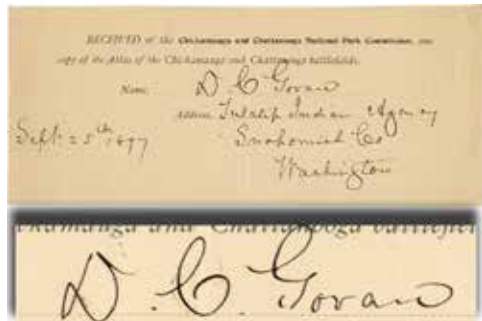 RECEIVED of the Chickamauga and Chattanooga National Park Commission, one
copy of the Atlas of the Chickamauga and Chattanooga battlefields.
Name: D C Govan
Address: Tulalip Indian Agency
Sept. 25th 1897
Snohomish Co
Washington
ckamauga and Chattanooga battlefiel
D. C. Govan